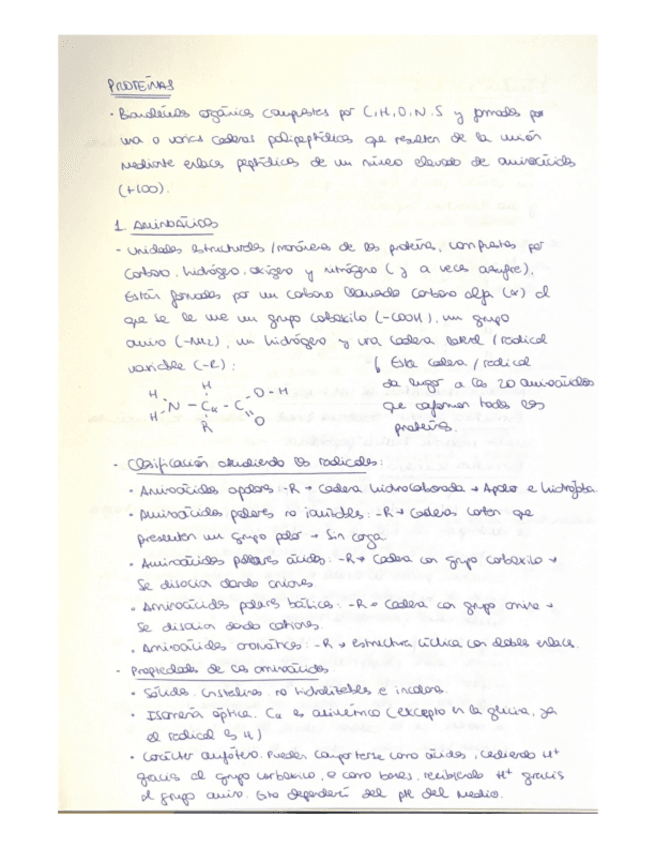 PROTEÍNAS
· Biomoléculas orgánicas compuestas por C, H, O, N, S y formadas por
una o varias cadenas polipeptídicas que resultan de la unión
mediante enlaces peptídicos de un número elevado de aminoácidos
(+100).
1. Aminoácidos
- Unidades estructurales / monómeros de las proteínas, compuestas por
carbono, hidrógeno, oxígeno y nitrógeno (y a veces azufre).
Están formados por un carbono llamado carbono alfa (α) al
que se le une un grupo carboxilo (-COOH), un grupo
amino (-NH2), un hidrógeno y una cadena lateral / radical
variable (-R):
Esta cadena / radical
da lugar a los 20 aminoácidos
que conforman todas las
proteínas.
H H O - H
N - Cα - C
H R O
- Clasificación atendiendo los radicales:
· Aminoácidos apolares: -R → Cadena hidrocarbonada → Apolar e hidrófoba
· Aminoácidos polares no ionizables: -R → Cadenas que
presentan un grupo polar → Sin carga.
· Aminoácidos polares ácidos: -R → Cadena con grupo carboxilo →
Se disocian dando aniones.
· Aminoácidos polares básicos: -R → Cadena con grupo amino →
Se disocian dando cationes.
· Aminoácidos aromáticos: -R → estructura cíclica con dobles enlaces.
- Propiedades de los aminoácidos
· Sólidos, cristalinos, no hidrolizables e incoloros.
· Isomería óptica. Cα es asimétrico (excepto en la glicina, ya
el radical es H)
· Carácter anfótero. Pueden comportarse como ácidos, cediendo H+
gracias al grupo carboxilo, o como bases, recibiendo H+ gracias
al grupo amino. Esto dependerá del pH del medio.